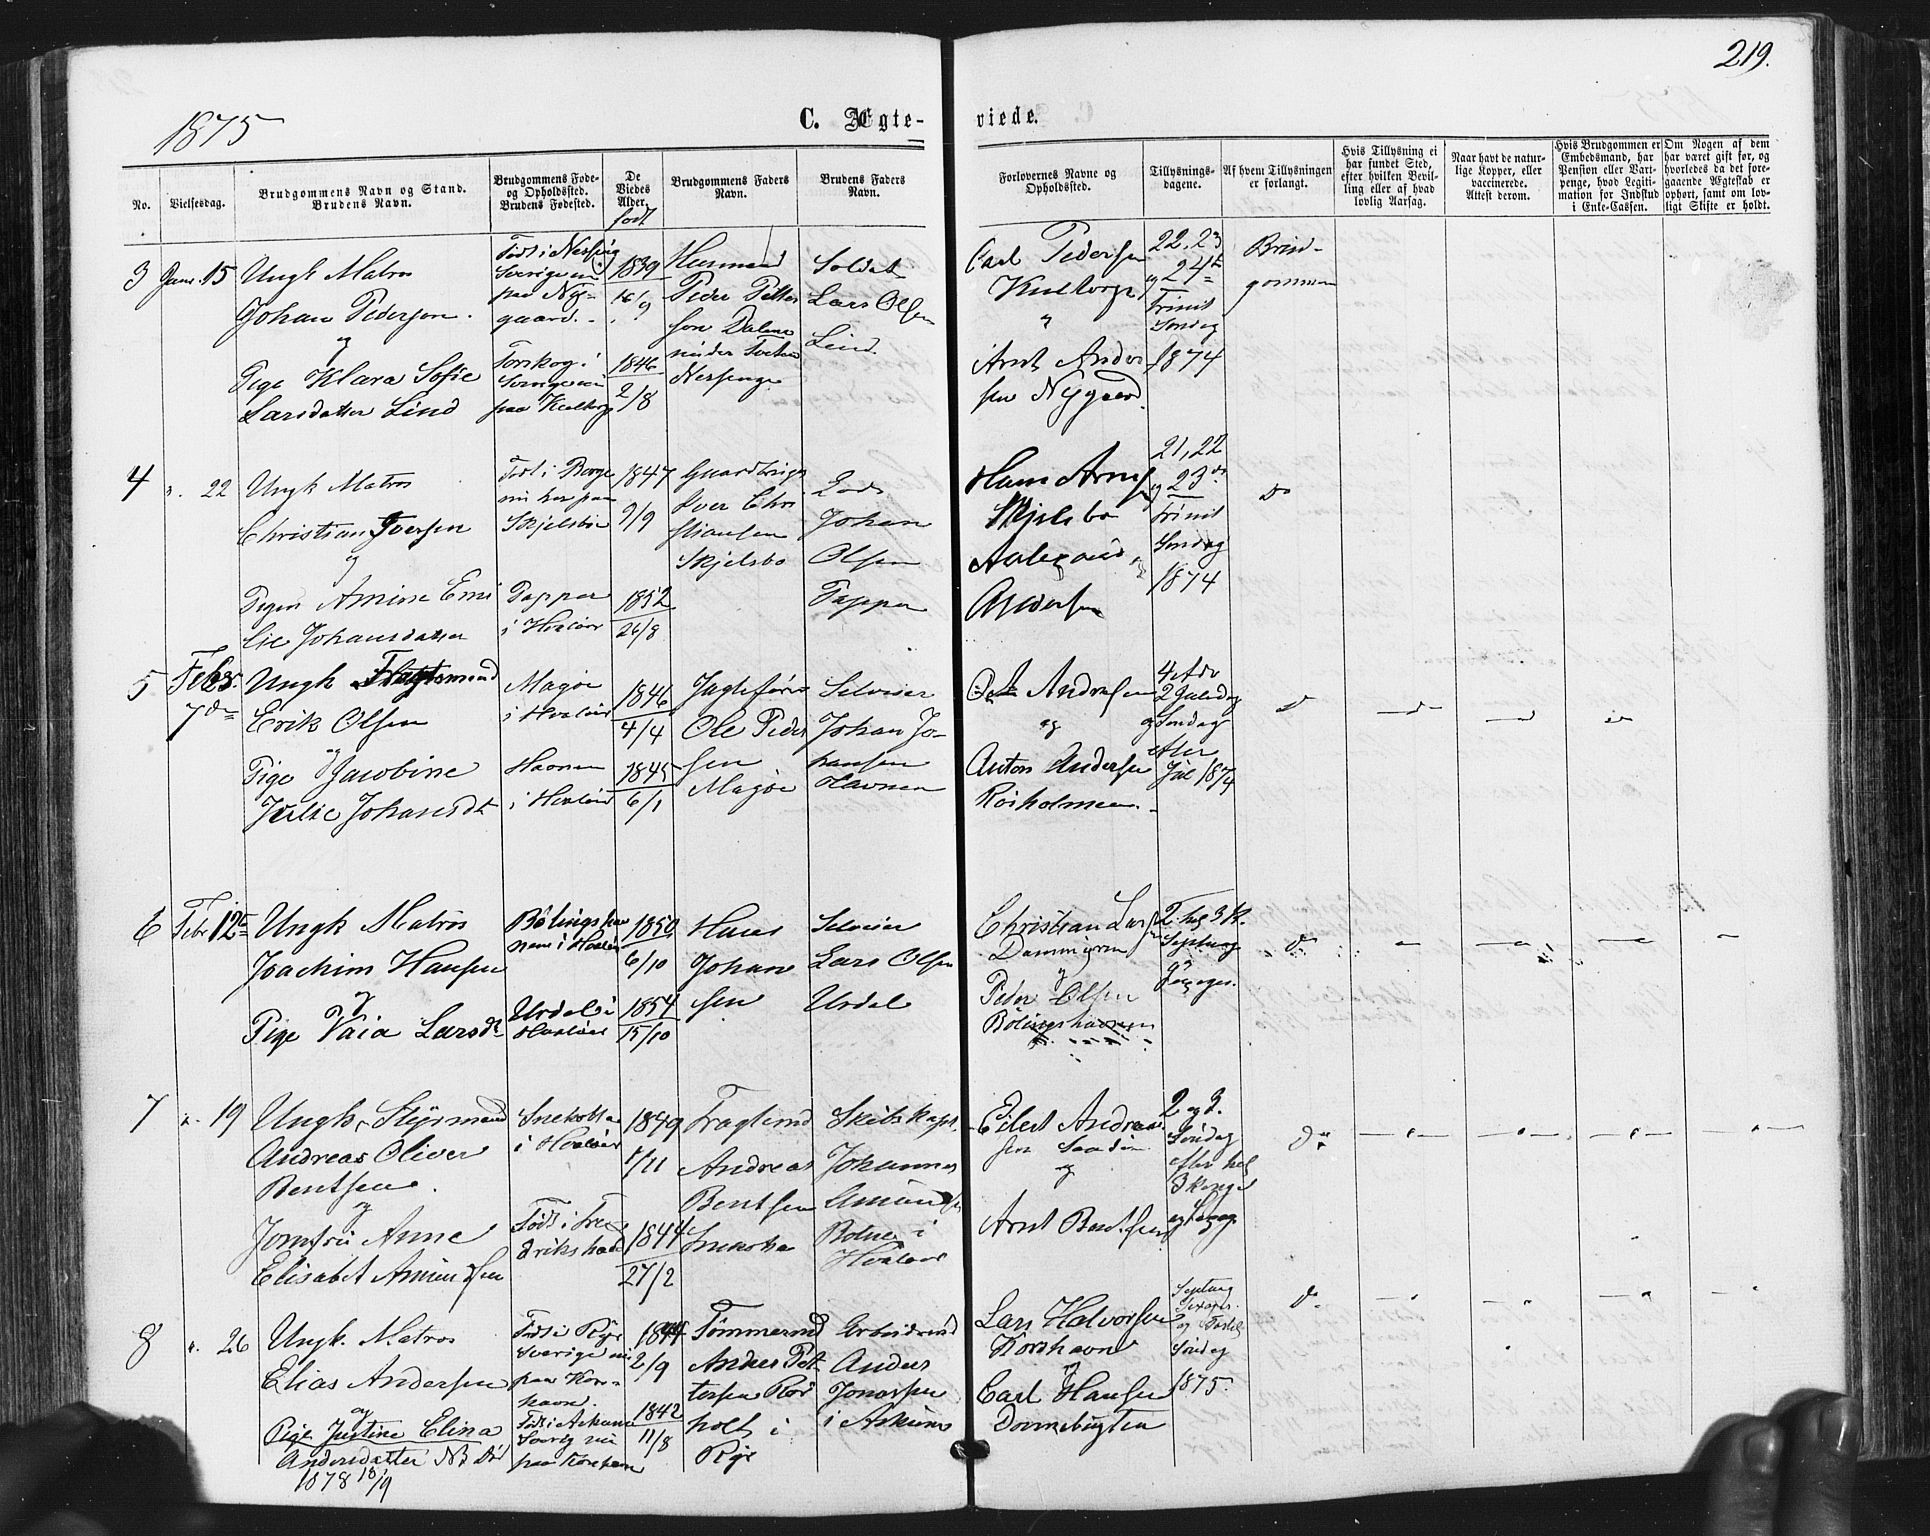 219.
1875
C. Ægte-
viede.
No.
Vielsesdag.
Brudgommens Navn og Stand.
Brudens Navn.
Brudgommens Føde-
og Opholdssted.
Brudens Fødested.
De
Viedes
Alder.
født
Brudgommens Faders
Navn.
Brudens Faders
Navn.
Forlovernes Navne og
Opholdssted.
Tillysnings-
dagene.
Af hvem Tillysningen
er forlangt.
Hvis Tillysning ei
har fundet Sted,
efter hvilken Bevil-
ling eller af hvad
lovlig Aarsag.
Naar havt de natur-
lige Kopper, eller
vaccinerede.
Attest derom.
Hvis Brudgommen er
Embedsmand, har
Pension eller Vart-
penge, hvad Legiti-
mation for Indskud
i Enke-Cassen.
Om Nogen af dem
har været gift før, og
hvorledes da det fore-
gaaende Ægteskab er
ophørt, samt om lov-
ligt Skifte er holdt.
3 Janr. 15
Ungk Matros
Johan Pedersen.
og
Pige Klara Sofie
Larsdatter Lind
Født i
Sverige nu
paa Ny-
gaard.
Torskog i
Sverige nu
paa
1839
16/9
1846
2/8
Huusmand
Peder Petter
sen Dalene
under
Soldat
Lars Olsen
Lind.
Carl Pedersen
og
Arnt Ander
sen Nygaard
22, 23
og 24de
Trinit
Søndag
1874
Brud-
gommen
4 " 22
Ungk Matros
Christian Iversen
og
Pigen Amine Emi
lie Johansdatter
Født i Borge
nu her paa
Skjelsbo
Papper
i Hvaløer
1847
9/9
1852
26/8
Gaardbruger
Iver Chri
stiansen
Skjelsbo
Lods
Johan
Olsen
Papper
Hans Arns
Skjelsbo
og
Andersen
21, 22
og 23de
Trinit
Søndag
1874
Do
5 Febr.
7de
Ungk Fragtemand
Erik Olsen
og
Pige Jacobine
Julie Johansdt
Magøe
i Hvaløer
Havnen
i Hvaløer
1846
4/4
1845
6/1
Jagtefører
Ole Peder
sen
Magøe
Selveier
Johan Jo-
hansen
Havnen
Andersen
og
Anton Andersen
Rösholmen.
4 Adv
2 Juledag
og Søndag
efter
Jul 1874
Do
6 Febr 12te
Ungk Matros
Joachim Hansen
og
Pige Vaia Larsdt
Bölingshav
nen i Hvaløer
Urdal i
Hvaløer
1850
6/10
1854
15/10
Hans
Johan
sen
Selveier
Lars Olsen
Urdal
Christian Lars
Dammyren
og
Peder Olsen
Bölingshavnen
2 Hel 3 K.
Septuag
og
Do
7 " 19
Ungk. Styrmand
Andreas Oliver
Bentsen.
og
Jomfru Anne
Elisabet Amundsen
Snekotta
i Hvaløer
Født i Fre
drikshald
1849
1/11
1844
27/2
Fragtemd
Andreas
Bentsen
Skibskapt.
Johannes
Amundsen
i
Hvaløer
Eilert Andrea
sen
og
Arnt Bentsen
2 og 3.
Søndag
efter hel
3 Konger
Do
8 " 26
Ungk. Matros
Elias Andersen
og
Pige Justine Elina
Andersdatter NB Død
1878 18/9
Født i Ryr
Sverige nu
paa Kors-
havn.
Født i Askum
Sverig nu
paa Korshavn
1844
2/9
1842
11/8
Tømmermd
Andres Pet-
tersen Rös
holt i
Ryr
Arbeidsmd
Anders
Jonassen
i Askum
Lars Halvorsen
Korshavn
og
Carl Hansen
Dovnebugten
Septuag
Sexages.
og Fastel.
Søndag
1875.
Do